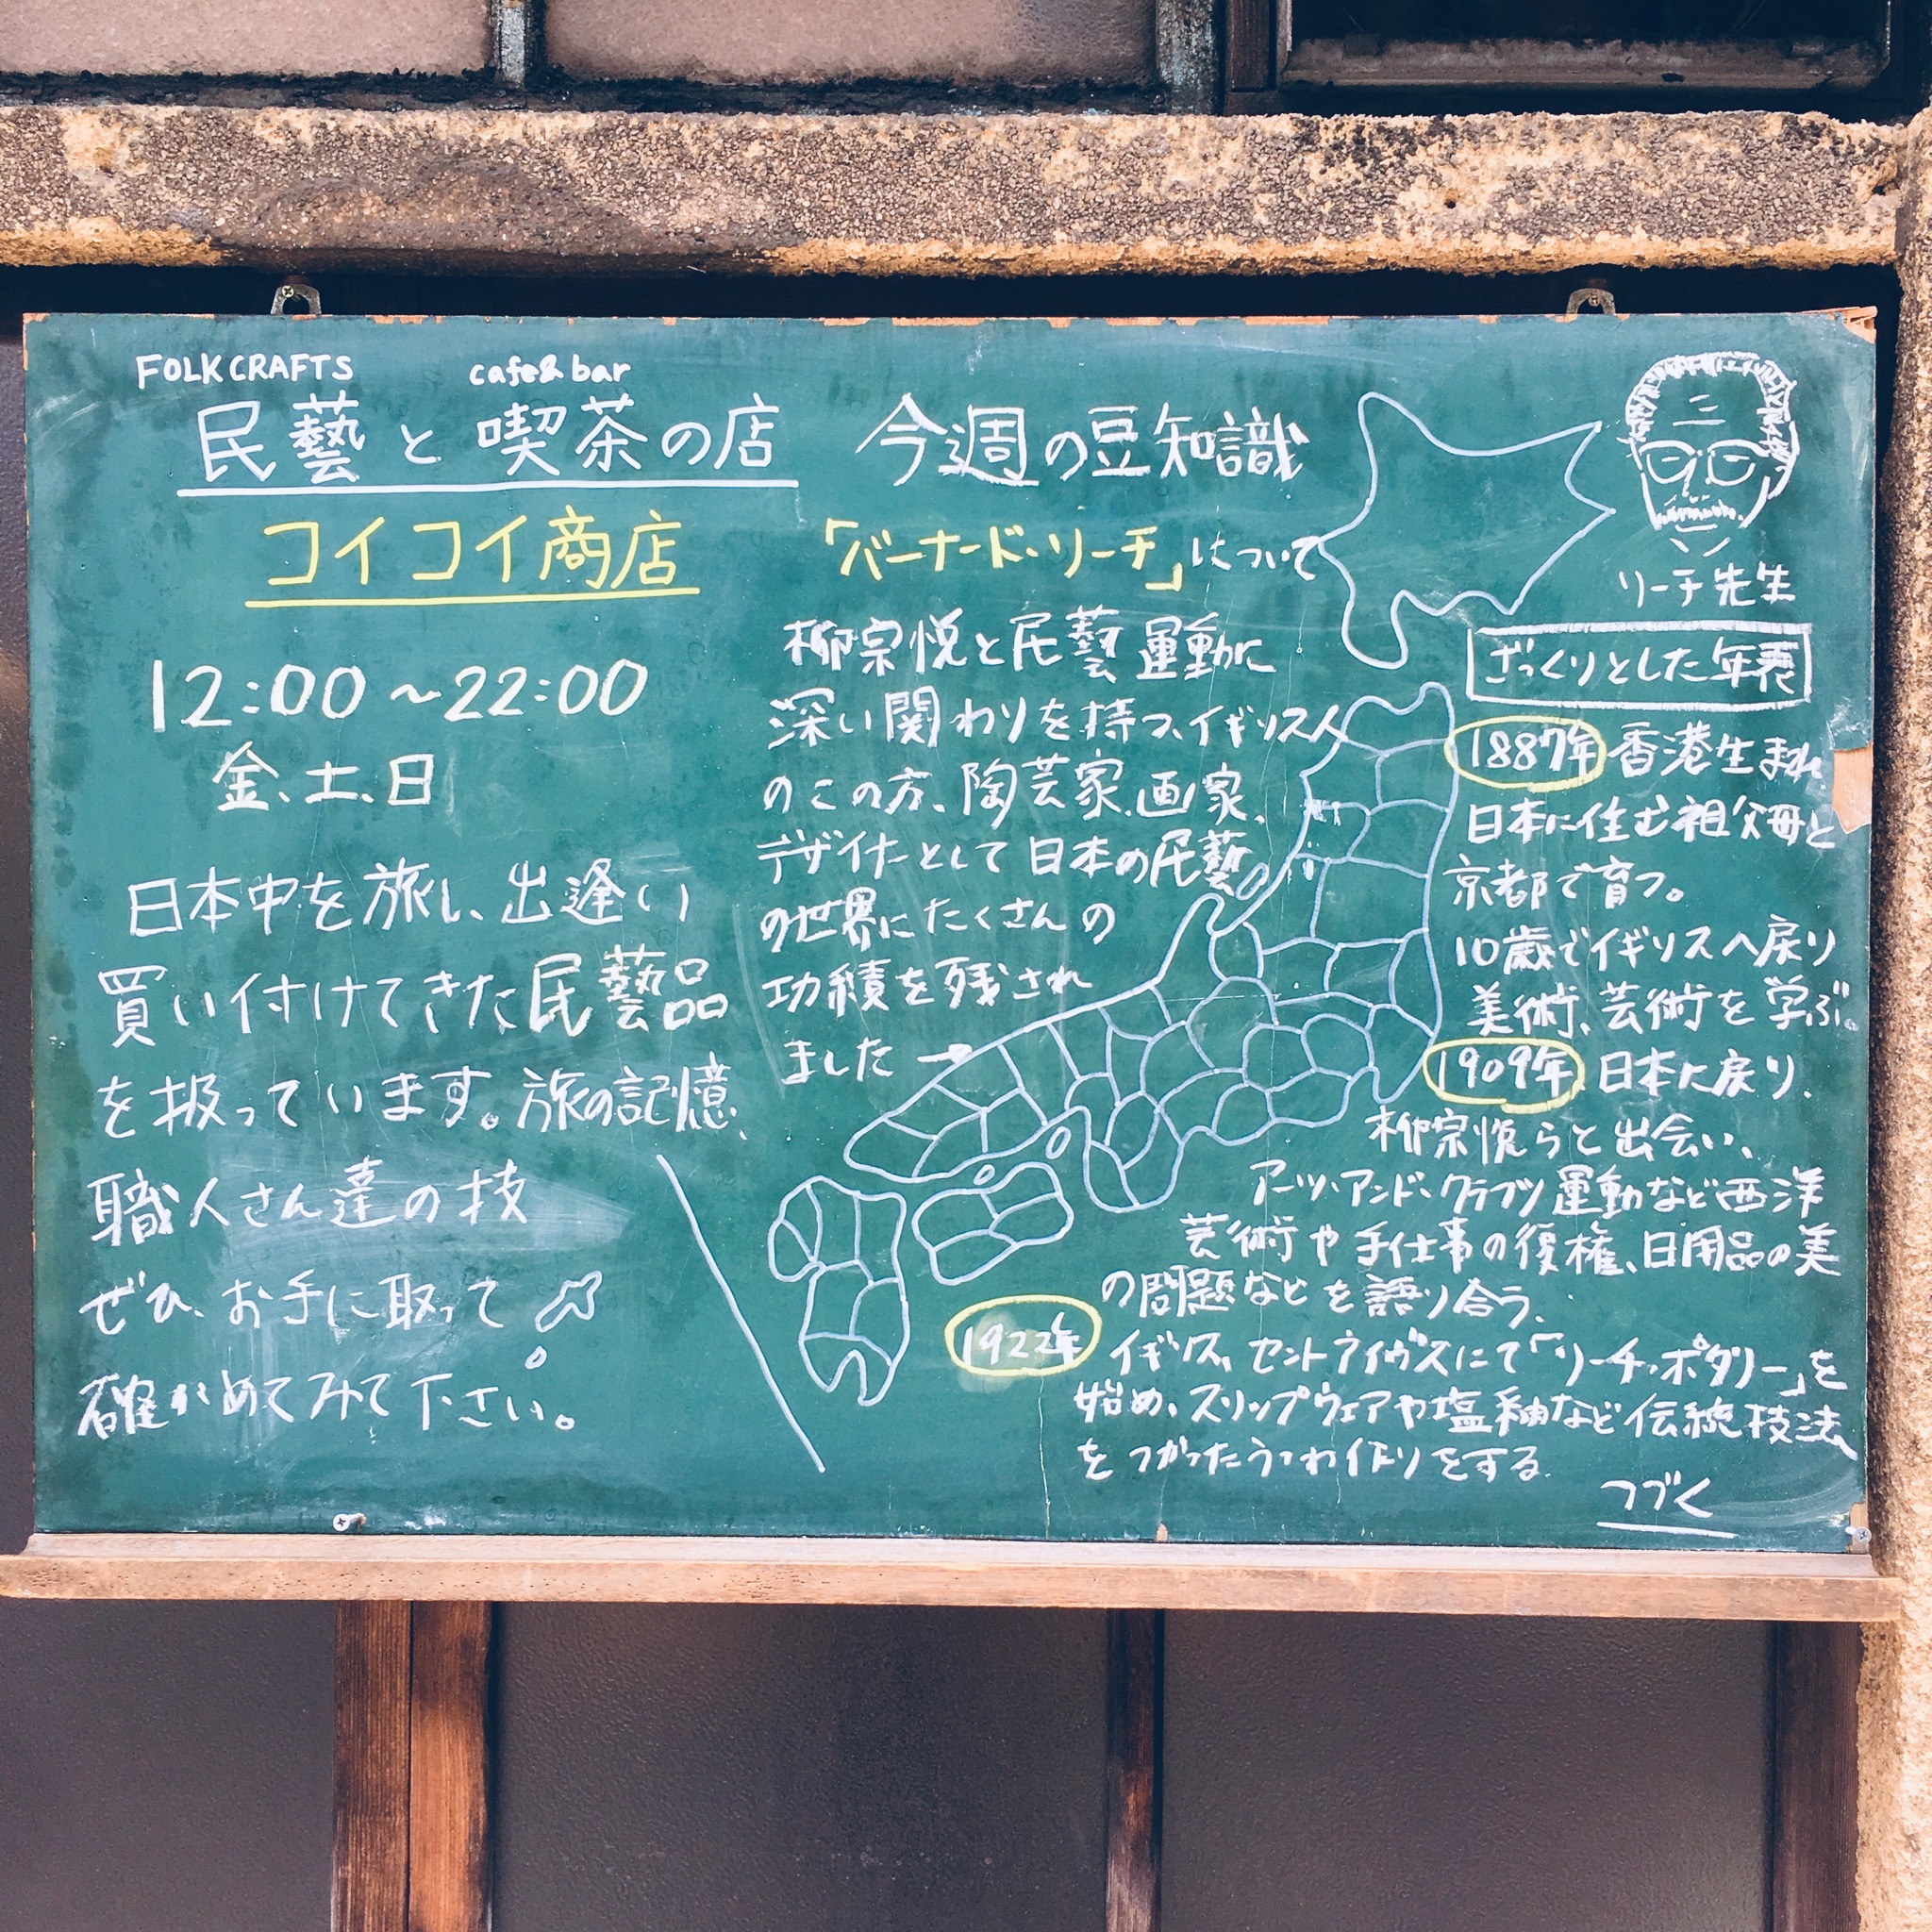 FOLK CRAFTS cafe & bar
民藝と喫茶の店
コイコイ商店
12:00〜22:00
金、土、日
日本中を旅し、出逢い
買い付けてきた民藝品
を扱っています。旅の記憶、
職人さん達の技
ぜひ、お手に取って
確かめてみて下さい。
今週の豆知識
「バーナード・リーチ」について
柳宗悦と民藝運動に
深い関わりを持つ、イギリス人
のこの方、陶芸家、画家、
デザイナーとして日本の民藝
の世界にたくさんの
功績を残され
ました
リーチ先生
ざっくりとした年表
1887年 香港生まれ
日本に住む祖父母と
京都で育つ。
10歳でイギリスへ戻り
美術、芸術を学ぶ。
1909年 日本に戻り、
柳宗悦らと出会い、
アーツ・アンド・クラフツ運動など西洋
芸術や手仕事の復権、日用品の美
の問題などを語り合う。
1922年 イギリス、セントアイヴスにて「リーチ・ポタリー」を
始め、スリップウェアや塩釉など伝統技法
をつかったうつわ作りをする。
つづく